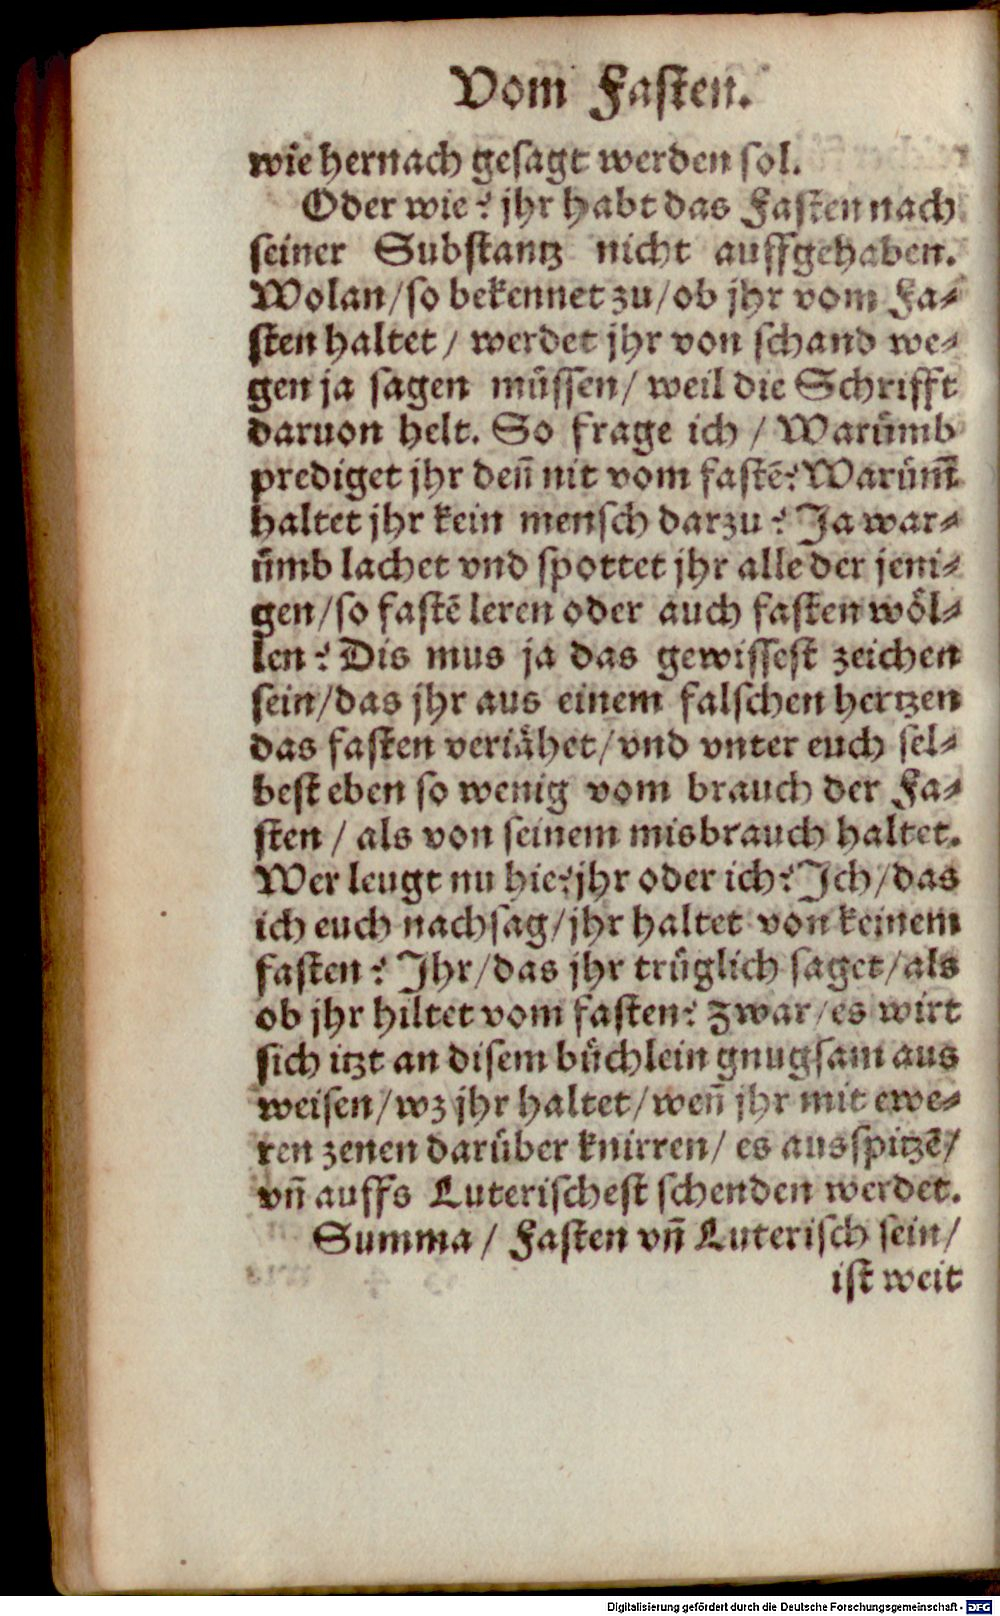 Vom Fasten.
wie hernach gesagt werden sol.
Oder wie? jhr habt das Fasten nach
seiner Substantz nicht auffgehaben.
Wolan/so bekennet zu/ob jhr vom Fa-
sten haltet / werdet jhr von schand we-
gen ja sagen müssen/ weil die Schrifft
daruon helt. So frage ich / Warümb
prediget jhr deñ nit vom fastē? Warüm̃
haltet jhr kein mensch darzu? Ja war-
ümb lachet vnd spottet jhr alle der jeni-
gen/so fastē leren oder auch fasten wöl-
len? Dis mus ja das gewissest zeichen
sein/das jhr aus einem falschen hertzen
das fasten veriähet/vnd vnter euch sel-
best eben so wenig vom brauch der Fa-
sten / als von seinem misbrauch haltet.
Wer leugt nu hie?jhr oder ich? Ich/das
ich euch nachsag/jhr haltet von keinem
fasten? Ihr/das jhr trüglich saget/als
ob jhr hiltet vom fasten? Zwar/es wirt
sich itzt an disem büchlein gnugsam aus
weisen/wz jhr haltet/weñ jhr mit ewe-
ren zenen darüber knirren/ es ausspitzē/
vñ auffs Luterischest schenden werdet.
Summa / Fasten vñ Luterisch sein/
ist weit
Digitalisierung gefördert durch die Deutsche Forschungsgemeinschaft - DFG